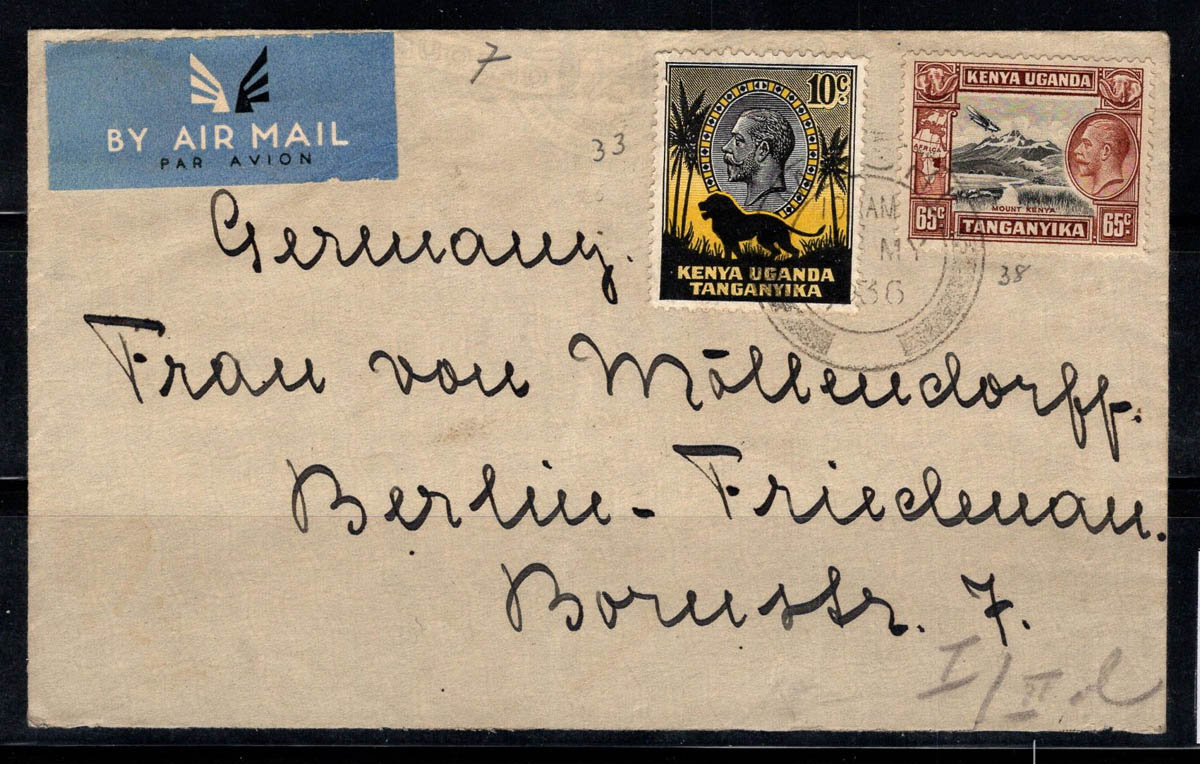 BY AIR MAIL
PAR AVION
7
33
10c.
KENYA UGANDA
TANGANYIKA
KENYA UGANDA
AFRICA
MOUNT KENYA
65c
TANGANYIKA
65c
AM
MY
36
38
Germany.
Frau von Möllendorff.
Berlin-Friedenau.
Bornstr. 7.
I/II